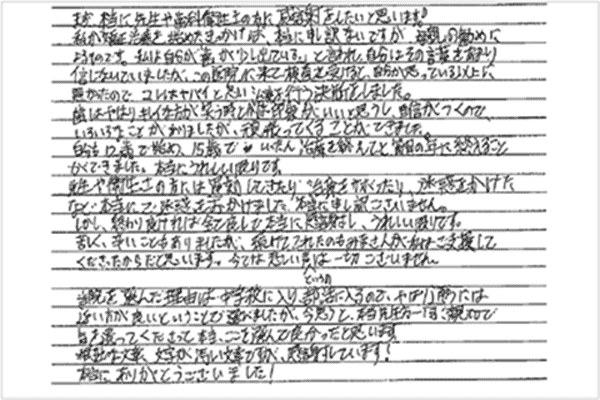 まず、本当に先生や歯科衛生士の方に感謝をしたいと思います!
私が矯正治療を始めたきっかけは、本当に申し訳ないですが、母親の勧めに
よるものです。私は自分が「歯が少し出ている。」と言われ、自分はその言葉をあまり
信じないでいましたが、この医院に来て検査を受けると、自分が思っている以上に
悪かったので、コレはヤバイと思い治療を行う決断をしました。
歯はやはりキレイな方が笑う時とか印象がいいと思うし、自信がつくので、
いろいろなことがありましたが、頑張ってくることができました。
自分は12歳で始め、15歳でいったん治療を終えてと節目の年に終えること
ができました。本当にうれしい限りです。
先生や衛生士の方には遅刻してきたり治療をサボったり、迷惑をかけた
など本当にご迷惑をおかけしました。本当に申し訳ございません。
しかし、終わり良ければ全て良しで本当に感謝し、うれしい限りです。
苦しく、辛いこともありましたが、続けてこれたのもみなさんが支援して
くださったからだと思います。今では悲しいという事は一切ございません。
当院を選んだ理由は中学校に入り、部活に入るので、やはり通うには
近い方が良いということで選びましたが、今思うと、本当に先生方一同、親切で
気を遣ってくださって本当、ここを選んで良かったと思います
文章、文字が汚い文章ですが、感謝しています!
本当にありがとうございました!